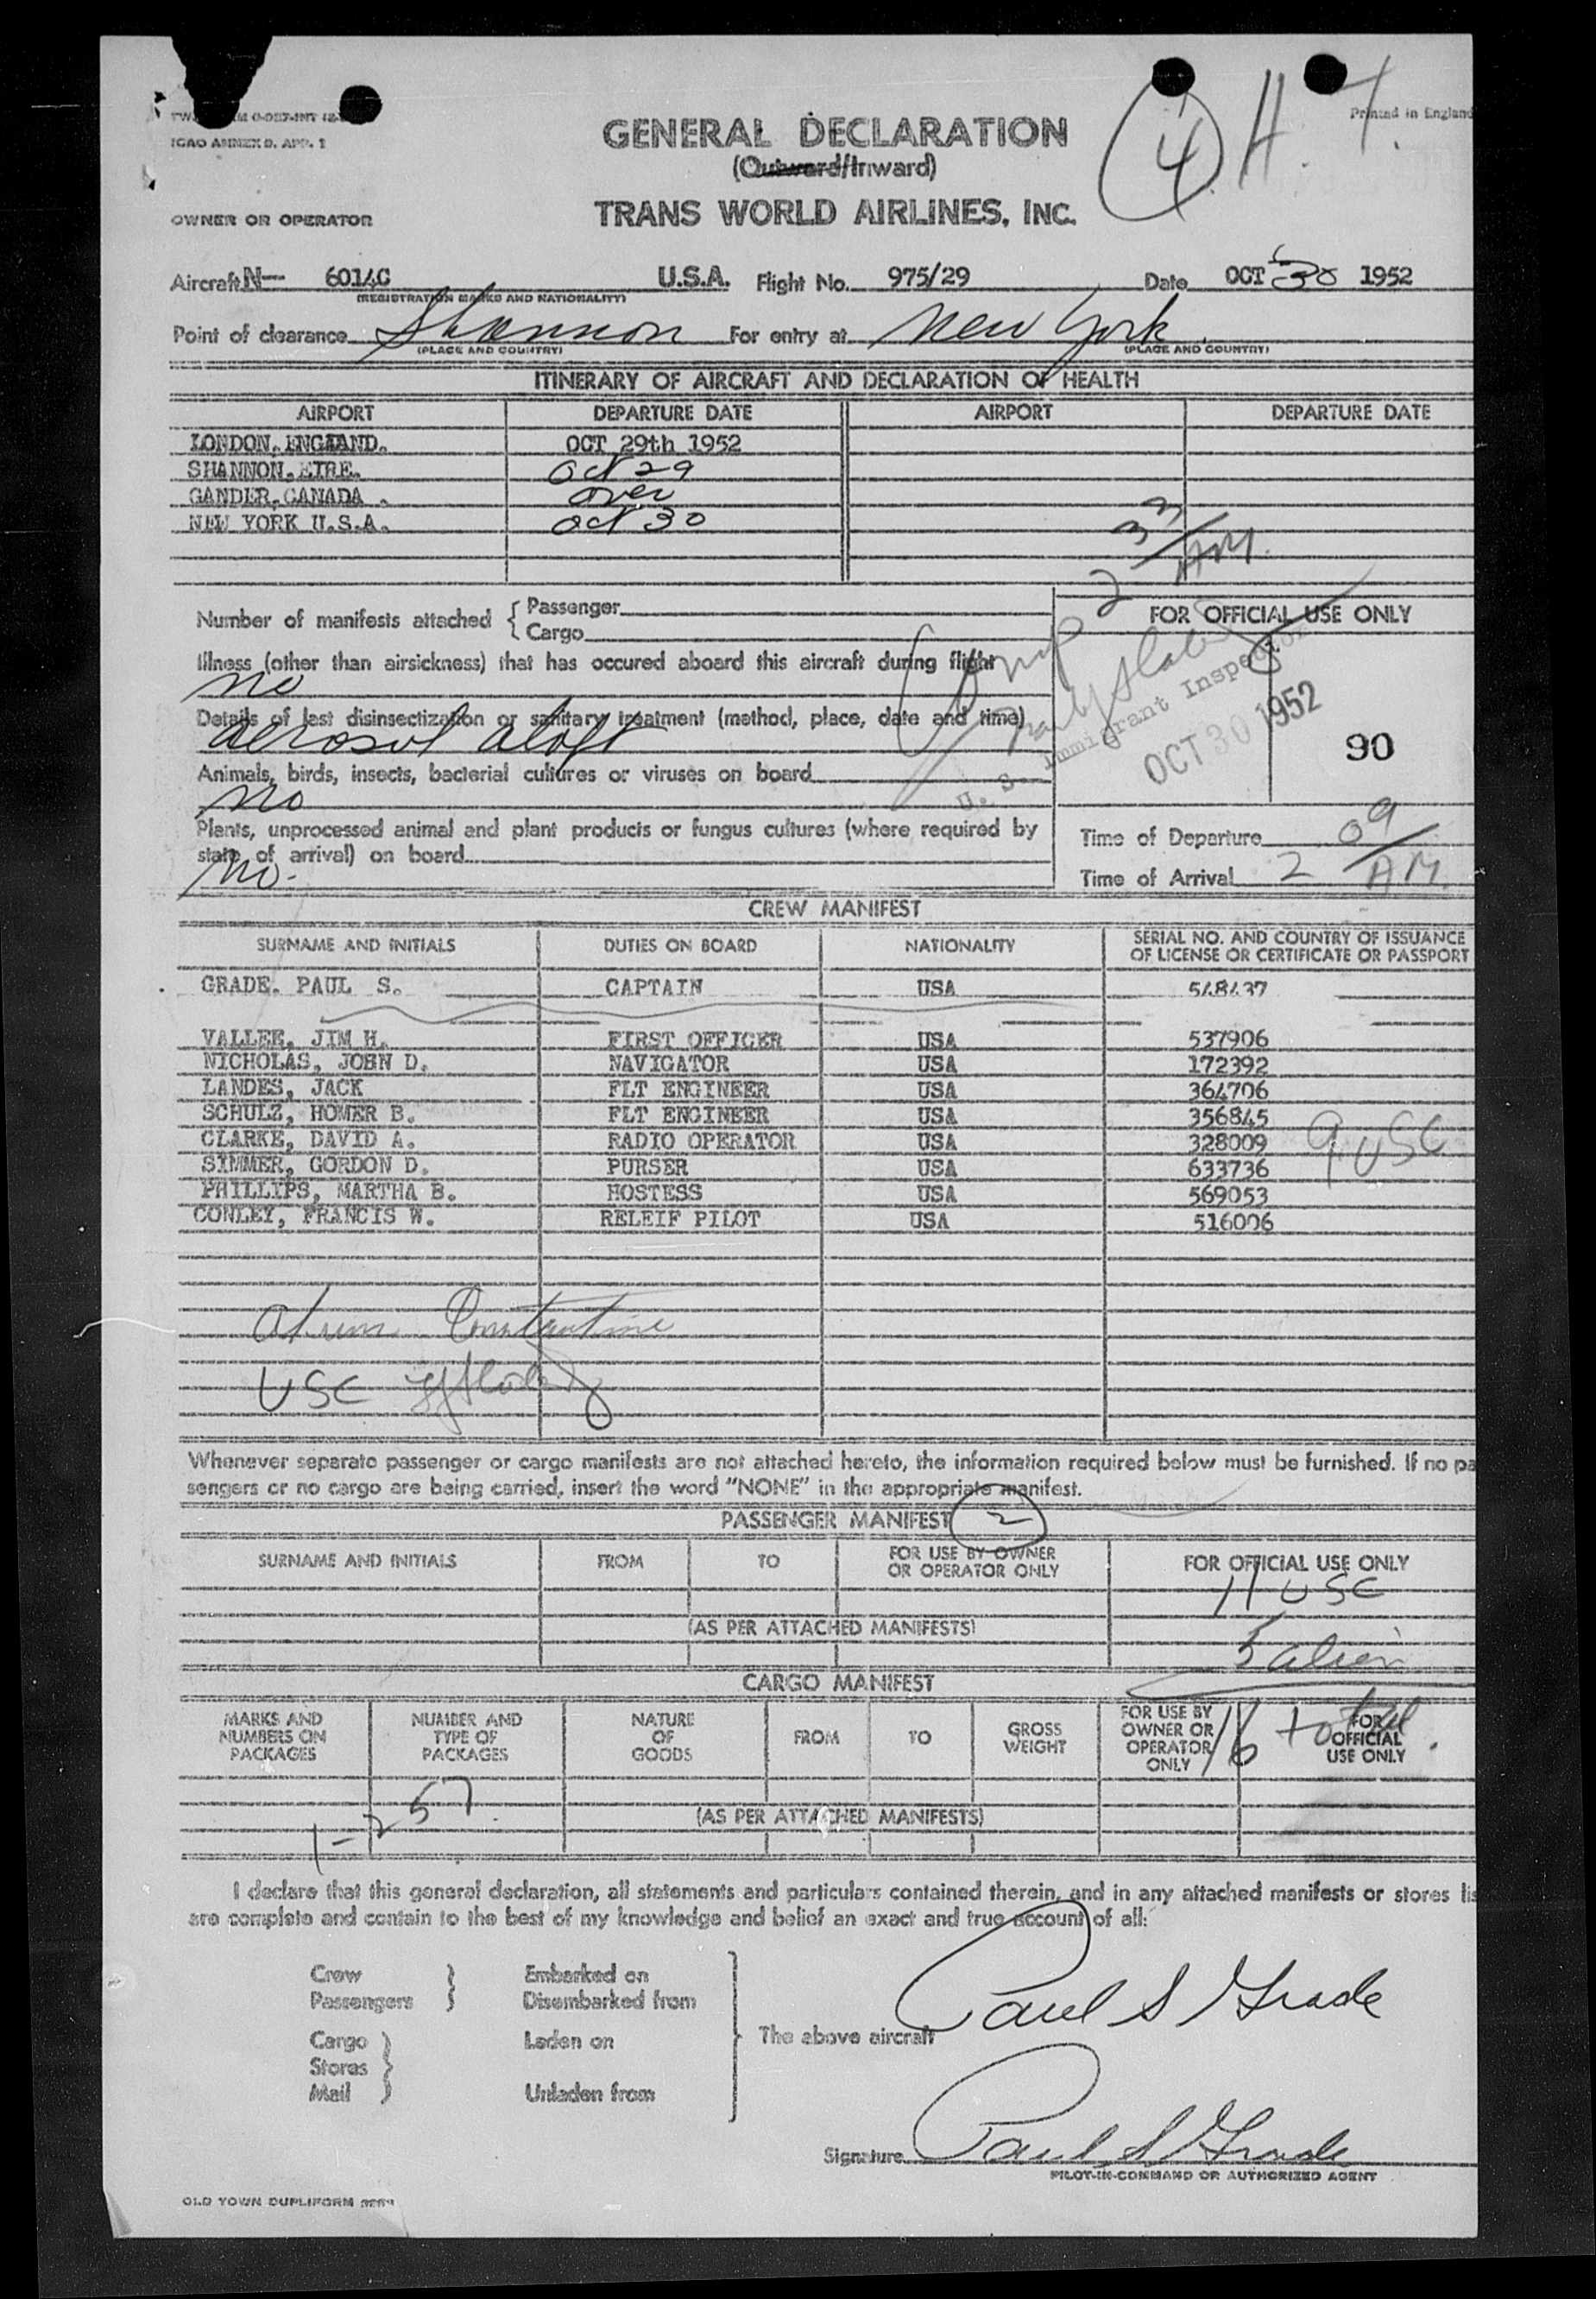 ICAO ANNEX 9. APP. 1
Printed in England
GENERAL DECLARATION
(Outward/Inward)
4 H. 7.
OWNER OR OPERATOR
TRANS WORLD AIRLINES, INC.
Aircraft N— 6014C U.S.A. Flight No. 975/29 Date OCT 30 1952
(REGISTRATION MARKS AND NATIONALITY)
Point of clearance Shannon For entry at New York
(PLACE AND COUNTRY) (PLACE AND COUNTRY)
ITINERARY OF AIRCRAFT AND DECLARATION OF HEALTH
AIRPORT DEPARTURE DATE AIRPORT DEPARTURE DATE
LONDON, ENGLAND. OCT 29th 1952
SHANNON, EIRE. Oct 29
GANDER, CANADA . over
NEW YORK U.S.A. Oct 30
Number of manifests attached { Passenger
Cargo
Comp 2 33 AM.
FOR OFFICIAL USE ONLY
Illness (other than airsickness) that has occured aboard this aircraft during flight
no
U. S. Immigrant Inspector
OCT 30 1952
90
Details of last disinsectization or sanitary treatment (method, place, date and time)
aerosol aloft
Animals, birds, insects, bacterial cultures or viruses on board
no
Plants, unprocessed animal and plant products or fungus cultures (where required by
state of arrival) on board
no.
Time of Departure
Time of Arrival 2 09 AM.
CREW MANIFEST
SURNAME AND INITIALS DUTIES ON BOARD NATIONALITY SERIAL NO. AND COUNTRY OF ISSUANCE
OF LICENSE OR CERTIFICATE OR PASSPORT
GRADE. PAUL S. CAPTAIN USA 548437
VALLEE, JIM H. FIRST OFFICER USA 537906
NICHOLAS, JOHN D. NAVIGATOR USA 172392
LANDES, JACK FLT ENGINEER USA 364706
SCHULZ, HOMER B. FLT ENGINEER USA 356845
CLARKE, DAVID A. RADIO OPERATOR USA 328009 9 USC
SIMMER, GORDON D. PURSER USA 633736
PHILLIPS, MARTHA B. HOSTESS USA 569053
CONLEY, FRANCIS W. RELEIF PILOT USA 516006
Constantine
USC
Whenever separate passenger or cargo manifests are not attached hereto, the information required below must be furnished. If no pa
sengers or no cargo are being carried, insert the word "NONE" in the appropriate manifest.
PASSENGER MANIFEST 2
SURNAME AND INITIALS FROM TO FOR USE BY OWNER
OR OPERATOR ONLY FOR OFFICIAL USE ONLY
11 USC
(AS PER ATTACHED MANIFESTS)
5 alien
CARGO MANIFEST
MARKS AND
NUMBERS ON
PACKAGES
NUMBER AND
TYPE OF
PACKAGES
NATURE
OF
GOODS
FROM TO GROSS
WEIGHT
FOR USE BY
OWNER OR
OPERATOR
ONLY
FOR
OFFICIAL
USE ONLY
16 total.
1-257
(AS PER ATTACHED MANIFESTS)
I declare that this general declaration, all statements and particulars contained therein, and in any attached manifests or stores lis
are complete and contain to the best of my knowledge and belief an exact and true account of all:
Crew Embarked on
Passengers Disembarked from
Cargo Laden on
Stores
Mail Unladen from
The above aircraft
Paul S Grade
Signature Paul S Grade
PILOT-IN-COMMAND OR AUTHORIZED AGENT
OLD TOWN DUPLIFORM